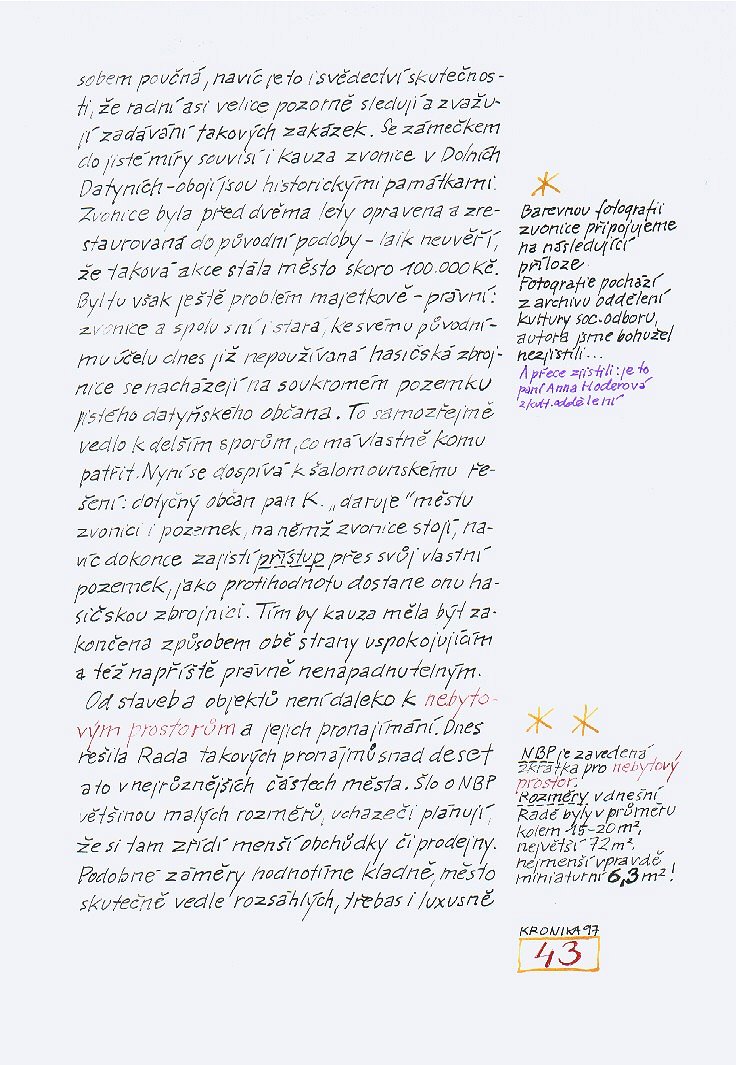 sobem poučná, navíc je to i svědectví skutečnos-
ti, že radní asi velice pozorně sledují a zvažu-
jí zadávání takových zakázek. Se zámečkem
do jisté míry souvisí i kauza zvonice v Dolních
Datyních – obojí jsou historickými památkami.
Zvonice byla před dvěma lety opravena a zre-
staurována do původní podoby – laik neuvěří,
že taková akce stála město skoro 100.000 Kč.
Byl tu však ještě problém majetkově – právní:
zvonice a spolu s ní i stará, ke svému původní-
mu účelu dnes již nepoužívaná hasičská zbroj-
nice se nacházejí na soukromém pozemku
jistého datyňského občana. To samozřejmě
vedlo k delším sporům, co má vlastně komu
patřit. Nyní se dospívá k šalamounskému ře-
šení: dotyčný občan pan K. „daruje" městu
zvonici i pozemek, na němž zvonice stojí, na-
víc dokonce zajistí přístup přes svůj vlastní
pozemek, jako protihodnotu dostane onu ha-
sičskou zbrojnici. Tím by kauza měla být za-
končena způsobem obě strany uspokojujícím
a též napříště právně nenapadnutelným.
Od staveb a objektů není daleko k nebyto-
vým prostorům a jejich pronajímání. Dnes
řešila Rada takových pronájmů snad deset
a to v nejrůznějších částech města. Šlo o NBP
většinou malých rozměrů, uchazeči plánují,
že si tam zřídí menší obchůdky či prodejny.
Podobné záměry hodnotíme kladně, město
skutečně vedle rozsáhlých, třebas i luxusně
Barevnou fotografii
zvonice připojujeme
na následující
příloze.
Fotografie pochází
z archivu oddělení
kultury soc. odboru,
autora jsme bohužel
nezjistili...
A přece zjistili: je to
paní Anna Hoderová
z kult. oddělení
NBP je zavedená
zkratka pro nebytový
prostor.
Rozměry v dnešní
Radě byly v průměru
kolem 15–20 m²,
největší 72 m²,
nejmenší vpravdě
miniaturní 6,3 m²!
KRONIKA 97
43